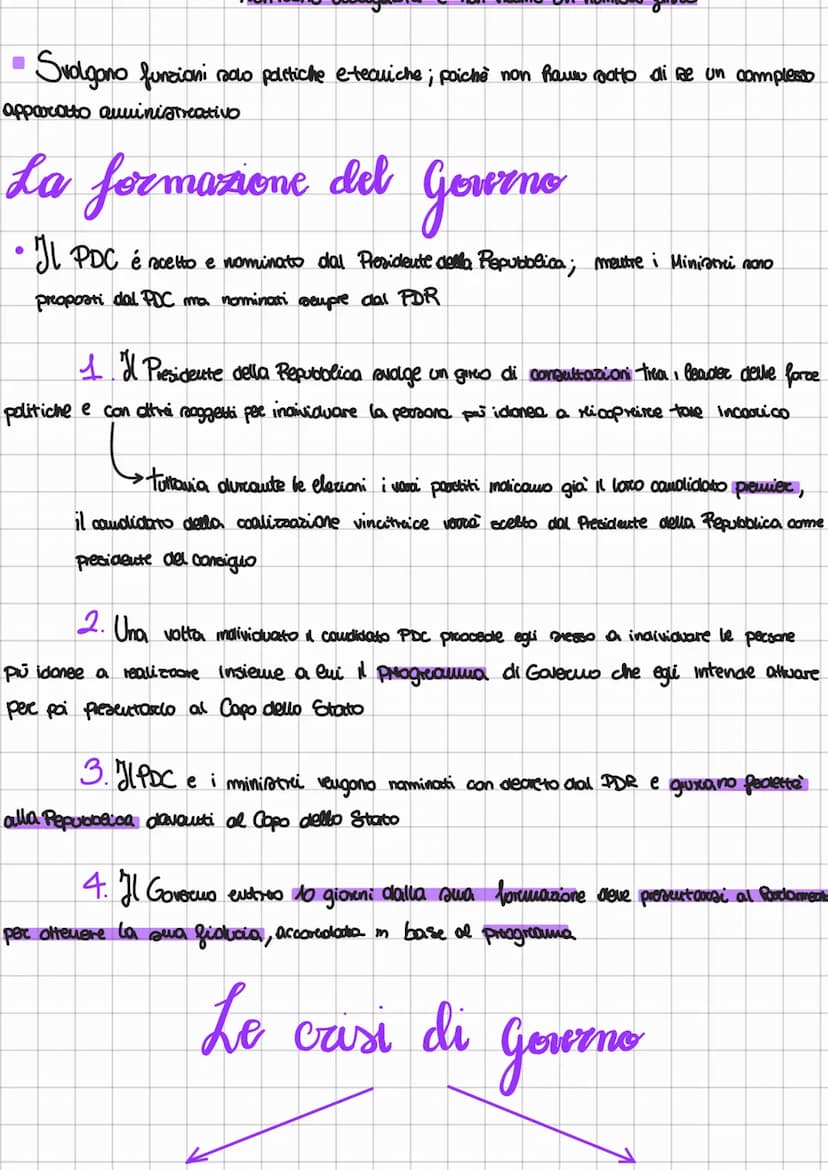 Svolgono funzioni solo politiche e tecniche; poiché non hanno sotto di se un complesso
apparato amministrativo
La formazione del Governo
• Il PDC é scelto e nominato dal Presidente della Repubblica; mentre i Ministri sono
proposti dal PDC ma nominati sempre dal PDR
1. Il Presidente della Repubblica svolge un giro di consultazioni tra i leader delle forze
politiche e con altri soggetti per individuare la persona più idonea a ricoprire tale incarico
tuttavia durante le elezioni i vari partiti indicano già il loro candidato premier,
il candidato della coalizzazione vincitrice verrà scelto dal Presidente della Repubblica come
presidente del consiglio
2. Una volta individuato il candidato PDC procede egli stesso a individuare le persone
più idonee a realizzare insieme a lui il programma di Governo che egli intende attuare
per poi presentarlo al Capo dello Stato
3. Il PDC e i ministri vengono nominati con decreto dal PDR e giurano fedeltà
alla Repubblica davanti al Capo dello Stato
4. Il Governo entro 10 giorni dalla sua formazione deve presentarsi al Parlamento
per ottenere la sua fiducia, accordata in base al programma
Le crisi di Governo